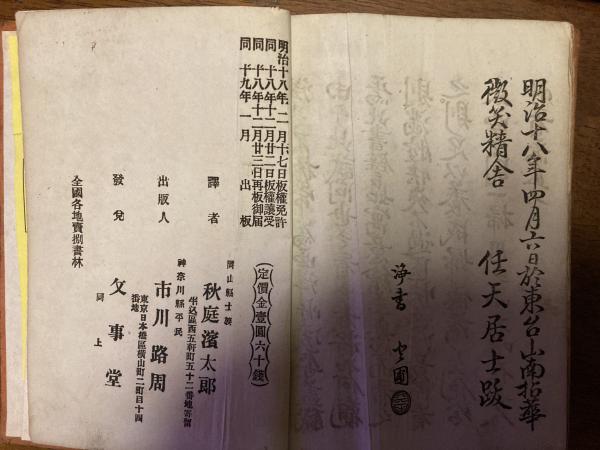 明治十八年四月六日於東台山南拈華
微笑精舎　任天居士跋
海書
明治十八年二月十七日板權免許
同　十八年十二月廿二日板權讓受
同　十八年十二月廿三日再板御届
同　十九年一月　出板
（定價金壹圓六十錢）
岡山縣士族
譯者　秋庭濱太郎
牛込區西五軒町五十二番地寄留
神奈川縣平民
出版人　市川路周
東京日本橋區横山町二町目十四
番地
發兌　文事堂
同上
全國各地賣捌書林